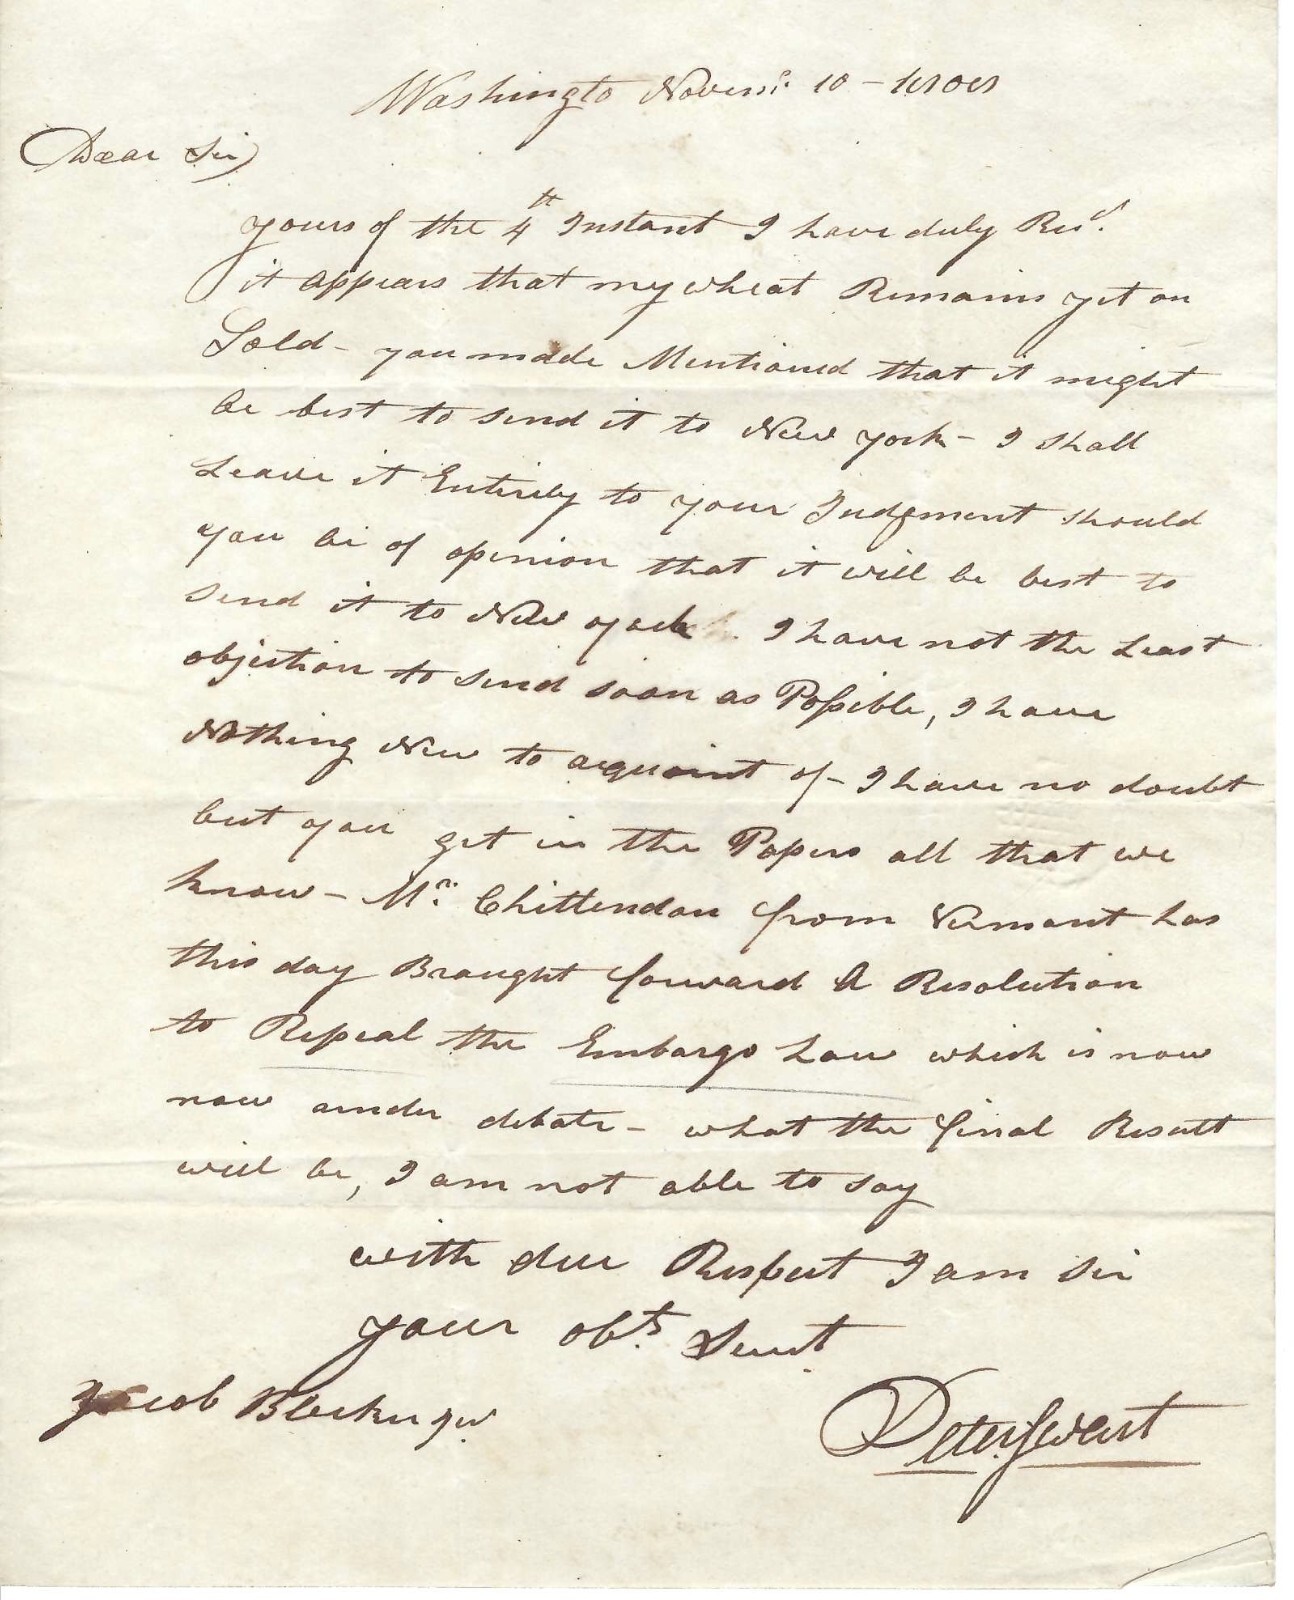 Washingto Novemr. 10 - 1808
Dear Sir
yours of the 4th Instant I have duly Recd.
it appears that my wheat Remains yet on
Sold - you made Mentioned that it might
be best to send it to New york - I shall
Leave it Entirely to your Judgment should
you be of opinion that it will be best to
send it to New york I have not the Least
objection to send soon as Possible, I have
Nothing New to acquaint of - I have no doubt
but you get in the Papers all that we
know - Mr. Chittendon from Vermont has
this day Braught forward A Resolution
to Repeal the Embargo Law which is now
now under debate - what the final Result
will be, I am not able to say
with due Respect I am sir
your obt. Servt
Jacob Bleeker Jur
Peter Swart